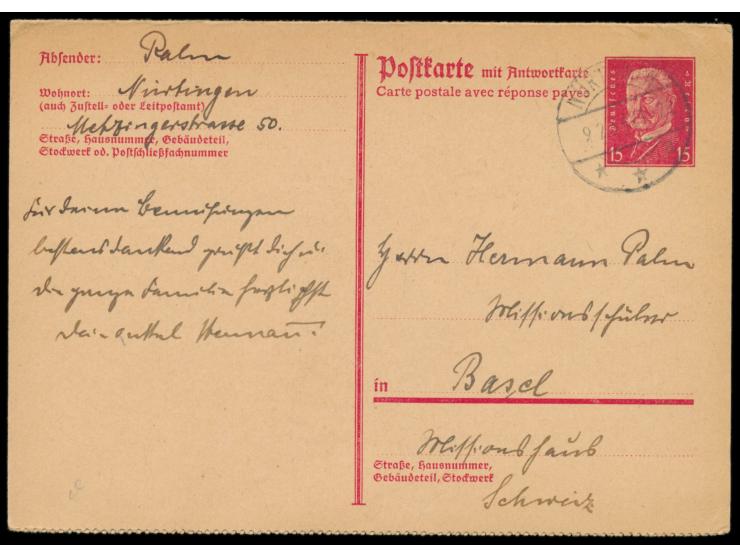 Absender: Palm
Wohnort: Nürtingen
(auch Zustell- oder Leitpostamt)
Metzingerstrasse 50.
Straße, Hausnummer, Gebäudeteil,
Stockwerk od. Postschließfachnummer
Für deine Bemühungen
bestens dankend grüßt dich u.
die ganze Familie herzlichst
dein Onkel Hermann.
Postkarte mit Antwortkarte
Carte postale avec réponse payée
Deutsches Reich
15 15
Herrn Hermann Palm
Missionsschüler
in Basel
Missionshaus
Straße, Hausnummer,
Gebäudeteil, Stockwerk
Schweiz